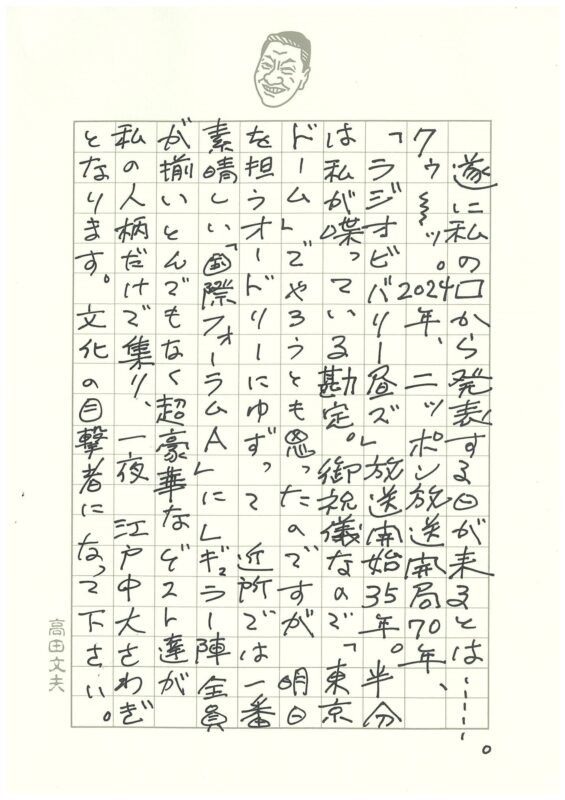 遂に私の口から発表する日が来るとは……。
クゥ〜〜ッ。2024年、ニッポン放送開局70年、
「ラジオビバリー昼ズ」放送開始35年。半分
は私が喋っている勘定。御祝儀なので「東京
ドーム」でやろうとも思ったのですが 明日
を担うオードリーにゆずって 近所では一番
素晴しい「国際フォーラムA」にレギュラー陣全員
が揃いとんでもなく超豪華なゲスト達が
私の人柄だけで集り、一夜 江戸中大さわぎ
となります。文化の目撃者になって下さい。
高田文夫